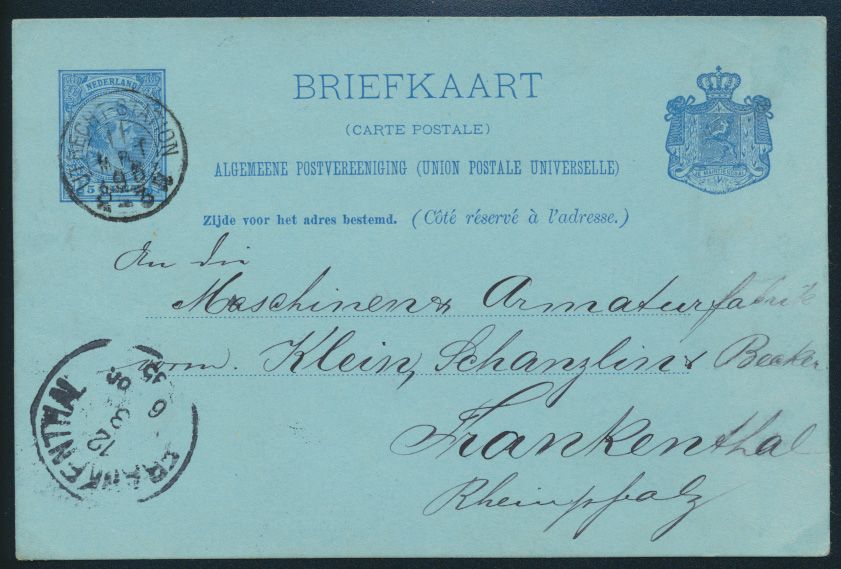 NEDERLAND
5
UTRECHT-STATION
BRIEFKAART
(CARTE POSTALE)
ALGEMEENE POSTVEREENIGING (UNION POSTALE UNIVERSELLE)
Zijde voor het adres bestemd. (Côté réservé à l'adresse.)
An die
Maschinen & Armaturfabrik
vorm. Klein, Schanzlin & Becker
Frankenthal
Rheinpfalz
FRANKENTHAL